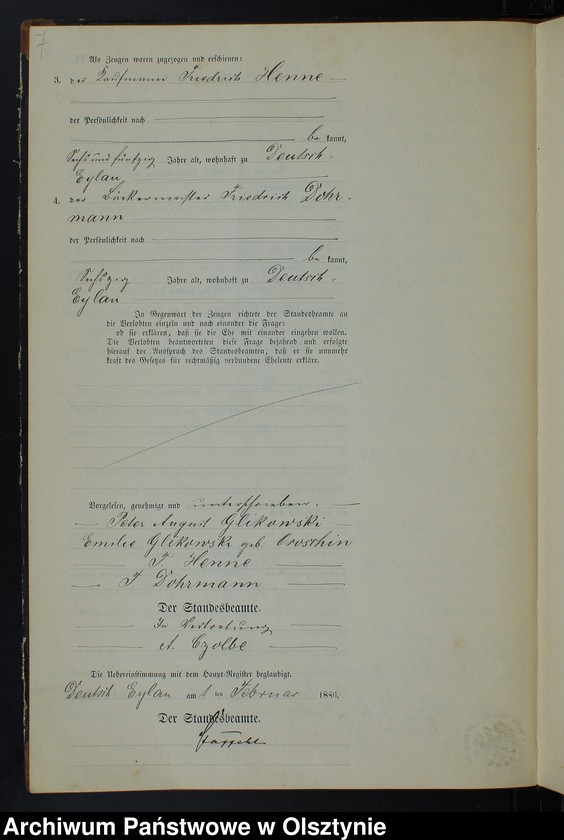 7
Als Zeugen waren zugezogen und erschienen:
3. der Kaufmann Friedrich Henne
der Persönlichkeit nach
be kannt,
Sechs und fünfzig Jahre alt, wohnhaft zu Deutsch-
Eylau
4. der Bäckermeister Friedrich Dohr-
mann
der Persönlichkeit nach
be kannt,
Sechszig Jahre alt, wohnhaft zu Deutsch-
Eylau
In Gegenwart der Zeugen richtete der Standesbeamte an
die Verlobten einzeln und nach einander die Frage:
ob sie erklären, daß sie die Ehe mit einander eingehen wollen.
Die Verlobten beantworteten diese Frage bejahend und erfolgte
hierauf der Ausspruch des Standesbeamten, daß er sie nunmehr
kraft des Gesetzes für rechtmäßig verbundene Eheleute erkläre.
Vorgelesen, genehmigt und unterschrieben.
Peter August Glikowski
Emilie Glikowski geb. Oroschin
F Henne
F Dohrmann
Der Standesbeamte.
In Vertretung
A. Czolbe
Die Uebereinstimmung mit dem Haupt-Register beglaubigt.
Deutsch. Eylau am 1 ten Februar 1886.
Der Standesbeamte.
Archiwum Państwowe w Olsztynie